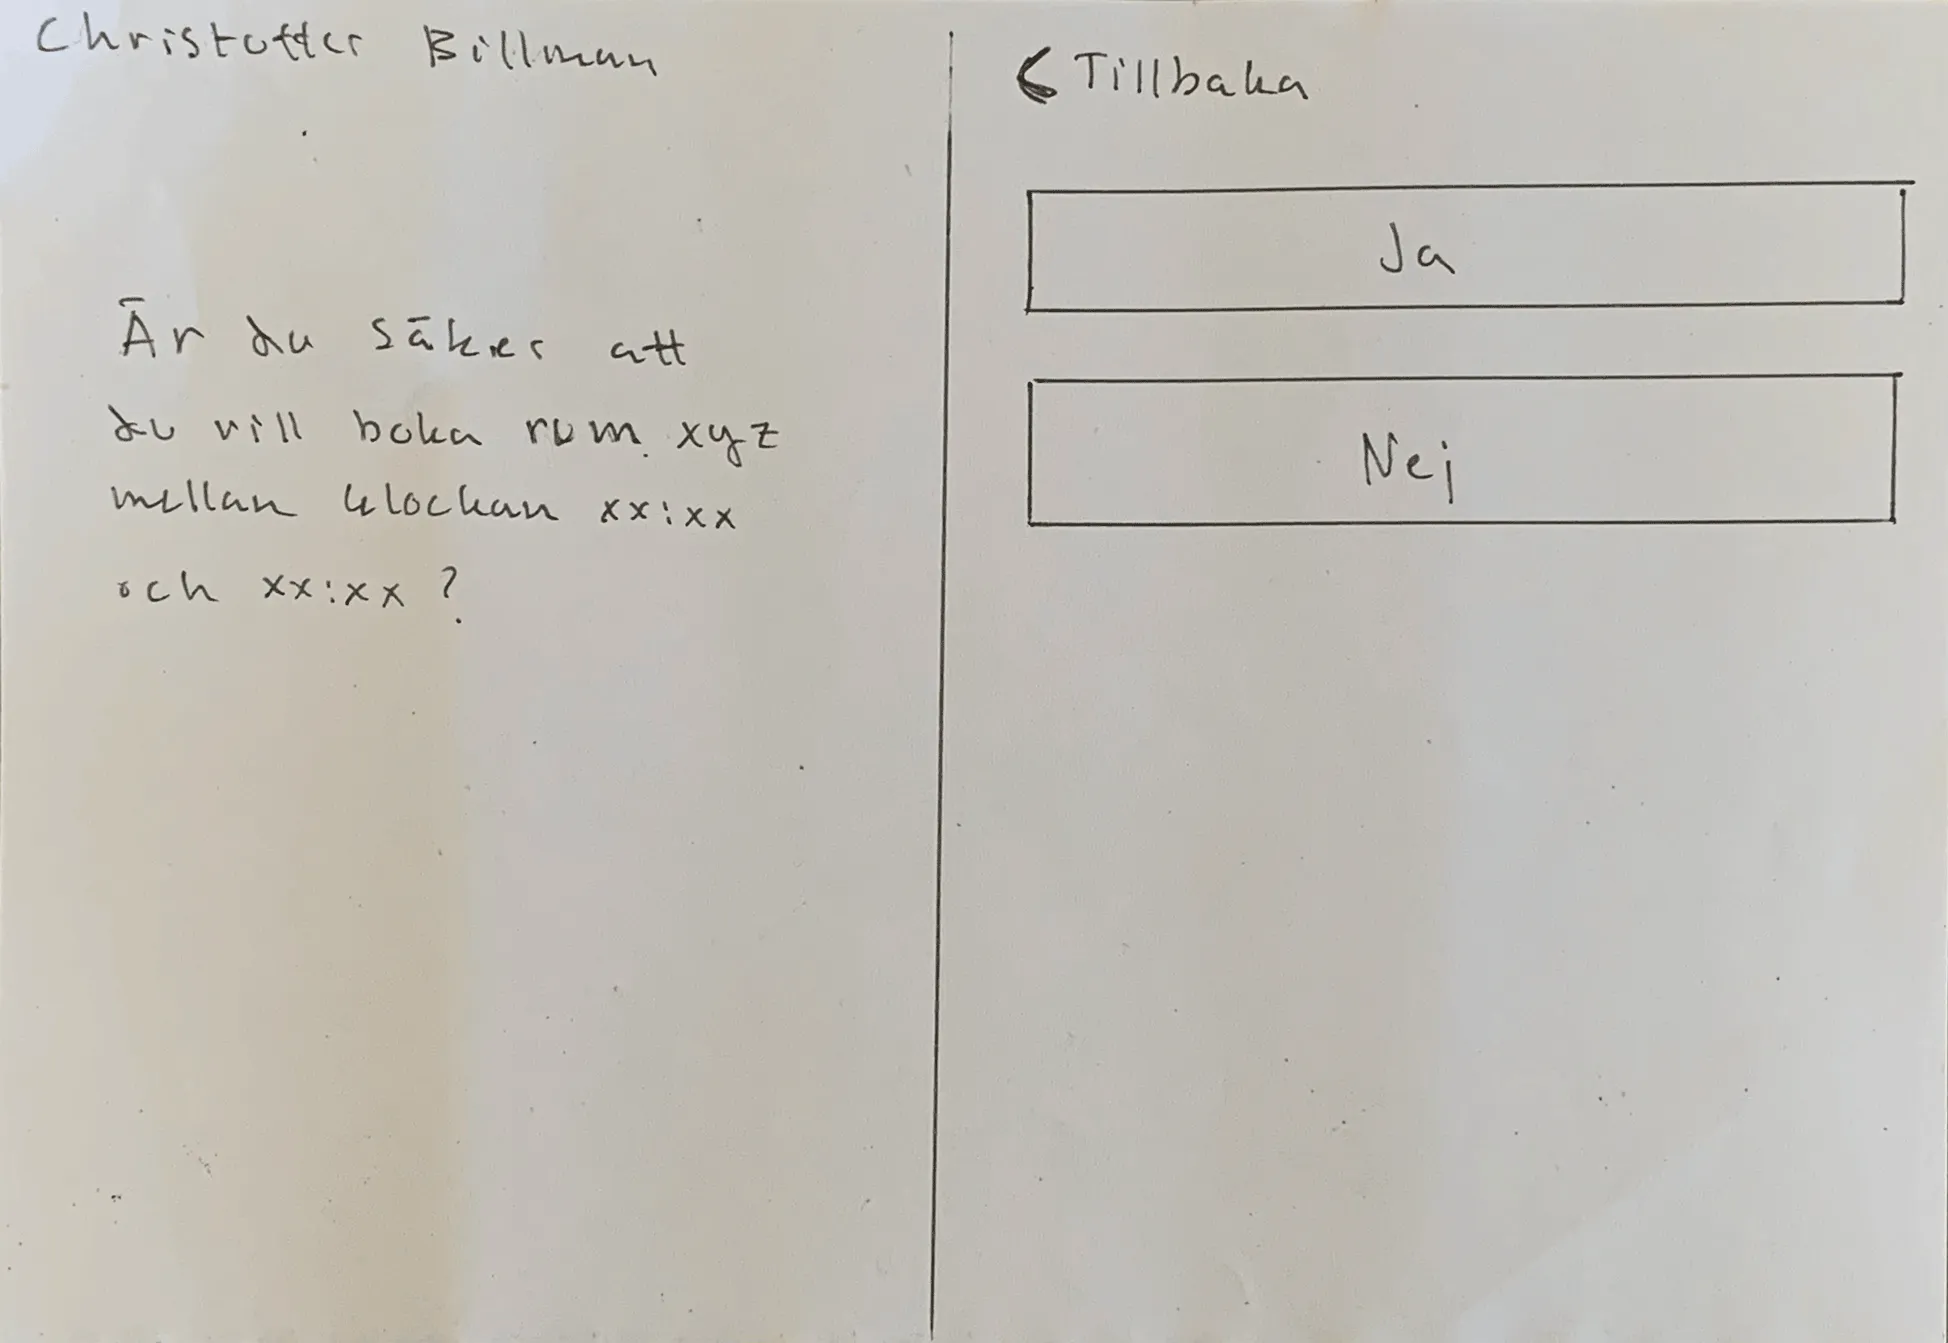 Christoffer Billman
Är du säker att
du vill boka rum xyz
mellan klockan xx:xx
och xx:xx ?
< Tillbaka
Ja
Nej